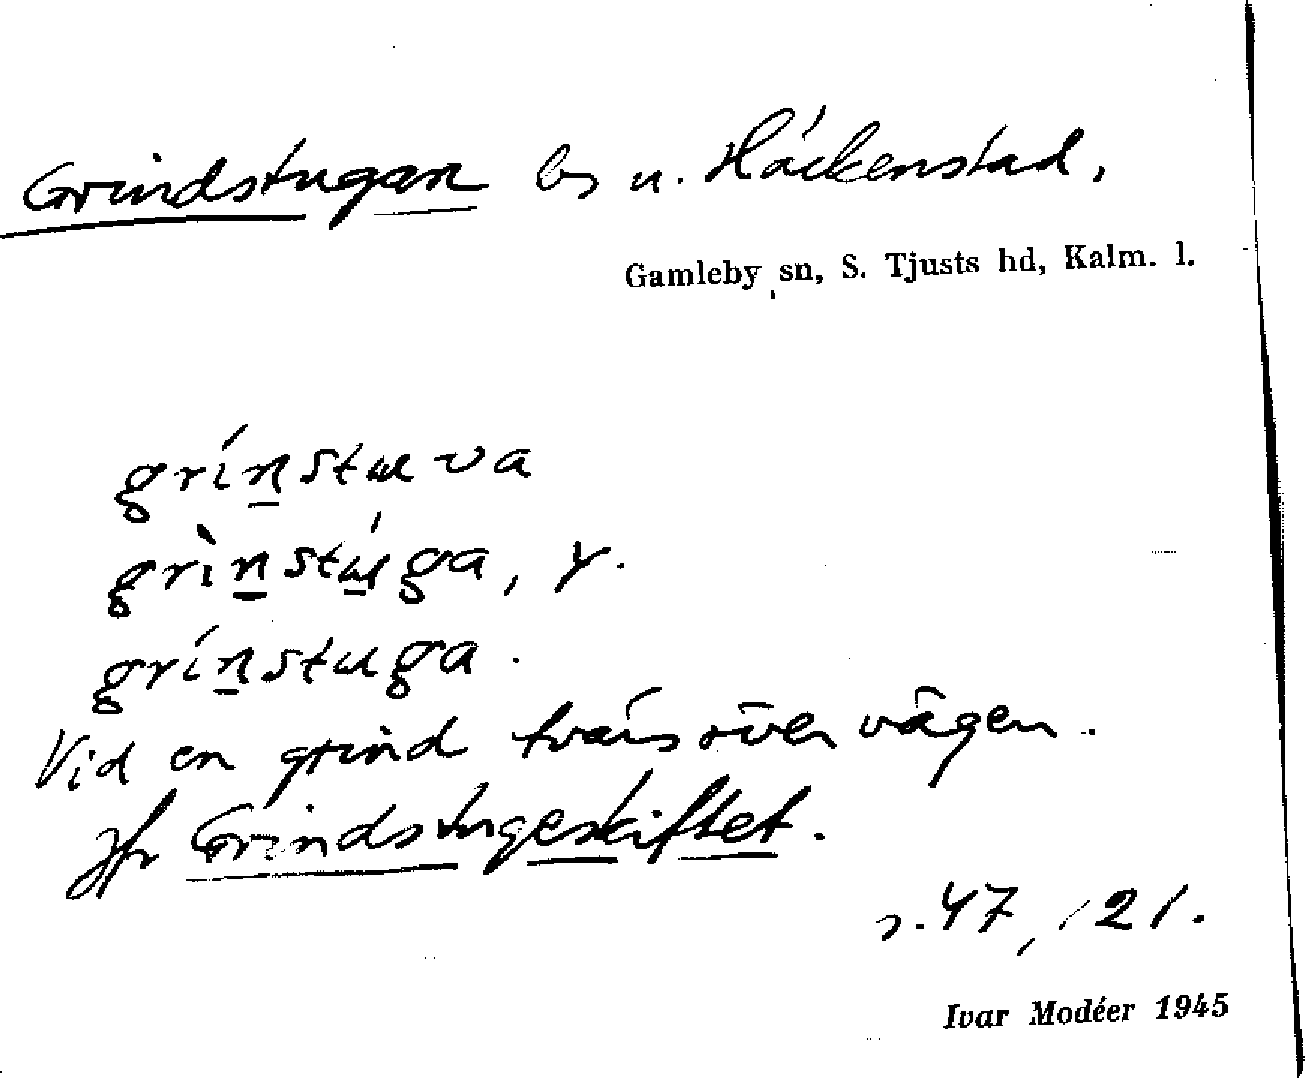 Grindstugan bs u. Häckenstad,
Gamleby sn, S. Tjusts hd, Kalm. l.
grinstuva
grinstuga, y.
grinstuga.
Vid en grind tvärs över vägen.
Jfr Grindstugeskiftet.
s. 47, 121.
Ivar Modéer 1945